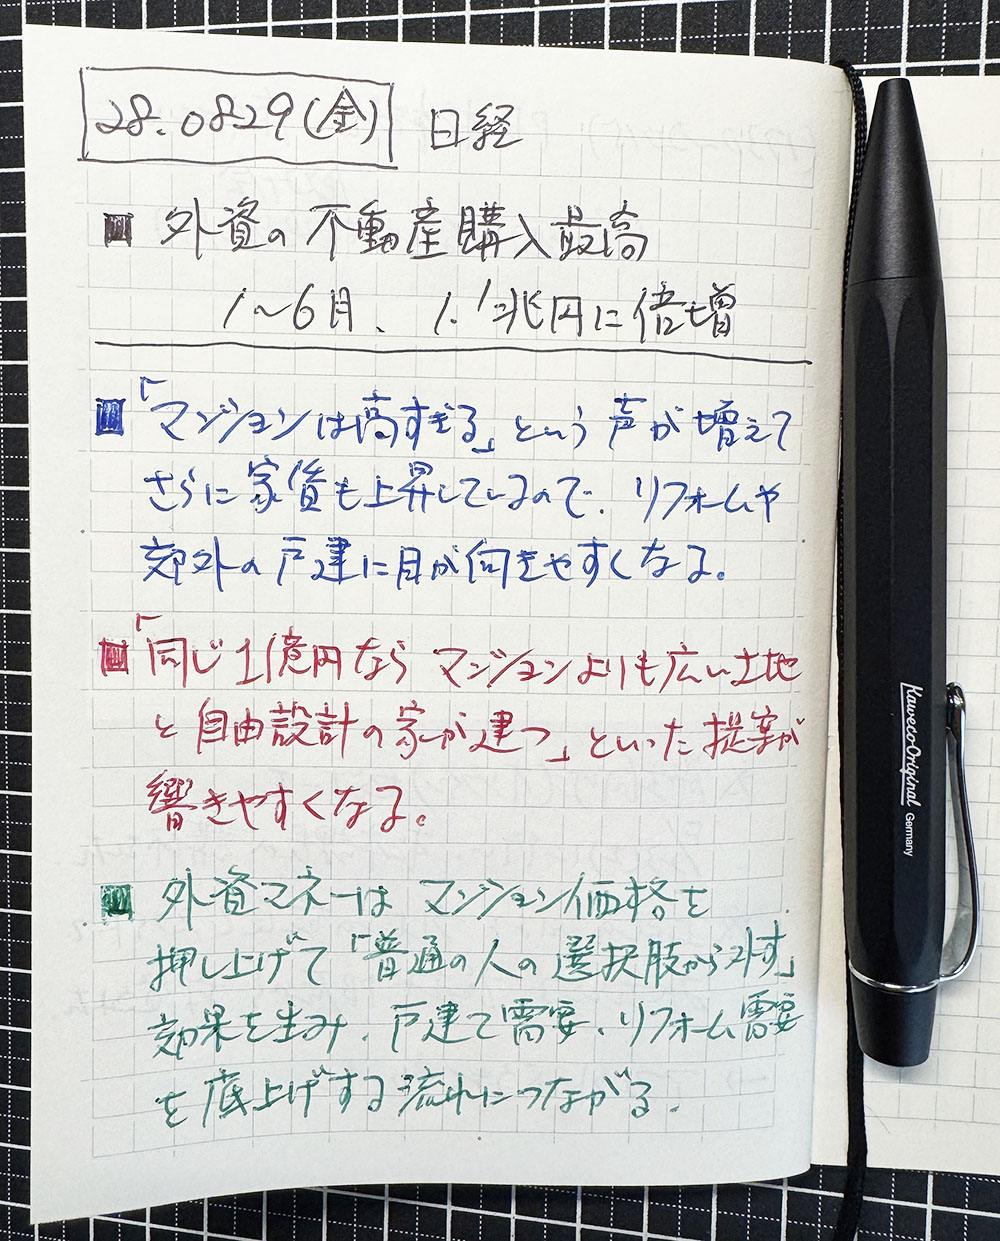 28.0829(金) 日経
■ 外資の不動産購入最高
1〜6月、1.1兆円に倍増
■「マンションは高すぎる」という声が増えて
さらに家賃も上昇しているので、リフォームや
郊外の戸建に目が向きやすくなる。
■「同じ1億円ならマンションよりも広い土地
と自由設計の家が建つ」といった提案が
響きやすくなる。
■ 外資マネーはマンション価格を
押し上げて「普通の人の選択肢から外す」
効果を生み、戸建て需要・リフォーム需要
を底上げする流れにつながる。
Kaweco Original Germany